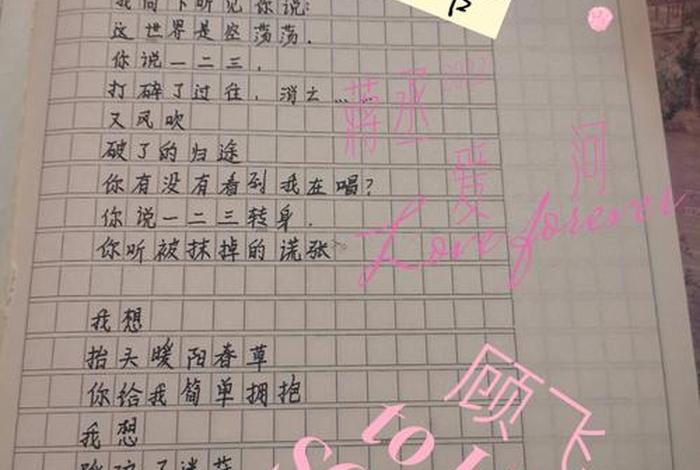 我向下听见你说:
这世界是空荡荡.
你说一二三,
打碎了过往,消亡……
又风吹
破了的归途
你有没有看到我在唱?
你说一二三转身.
你听被抹掉的谎张
我想
抬头暖阳春草
你给我简单拥抱
我想
蒋丞
爱河
Love forever
顾飞
to